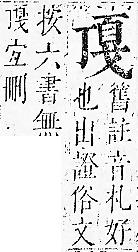 舊註音札好
也出證俗文
按六書無
宜刪